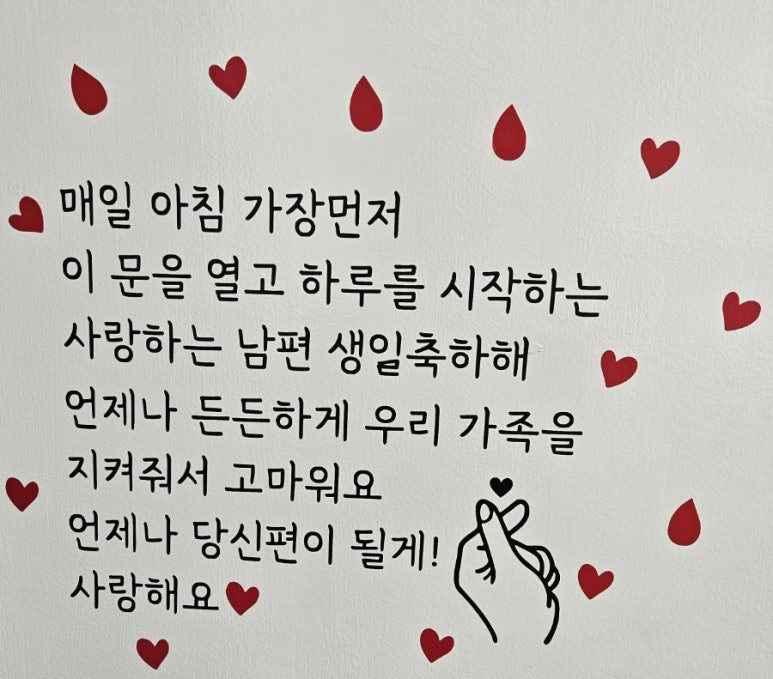 매일 아침 가장먼저
이 문을 열고 하루를 시작하는
사랑하는 남편 생일축하해
언제나 든든하게 우리 가족을
지켜줘서 고마워요
언제나 당신편이 될게!
사랑해요